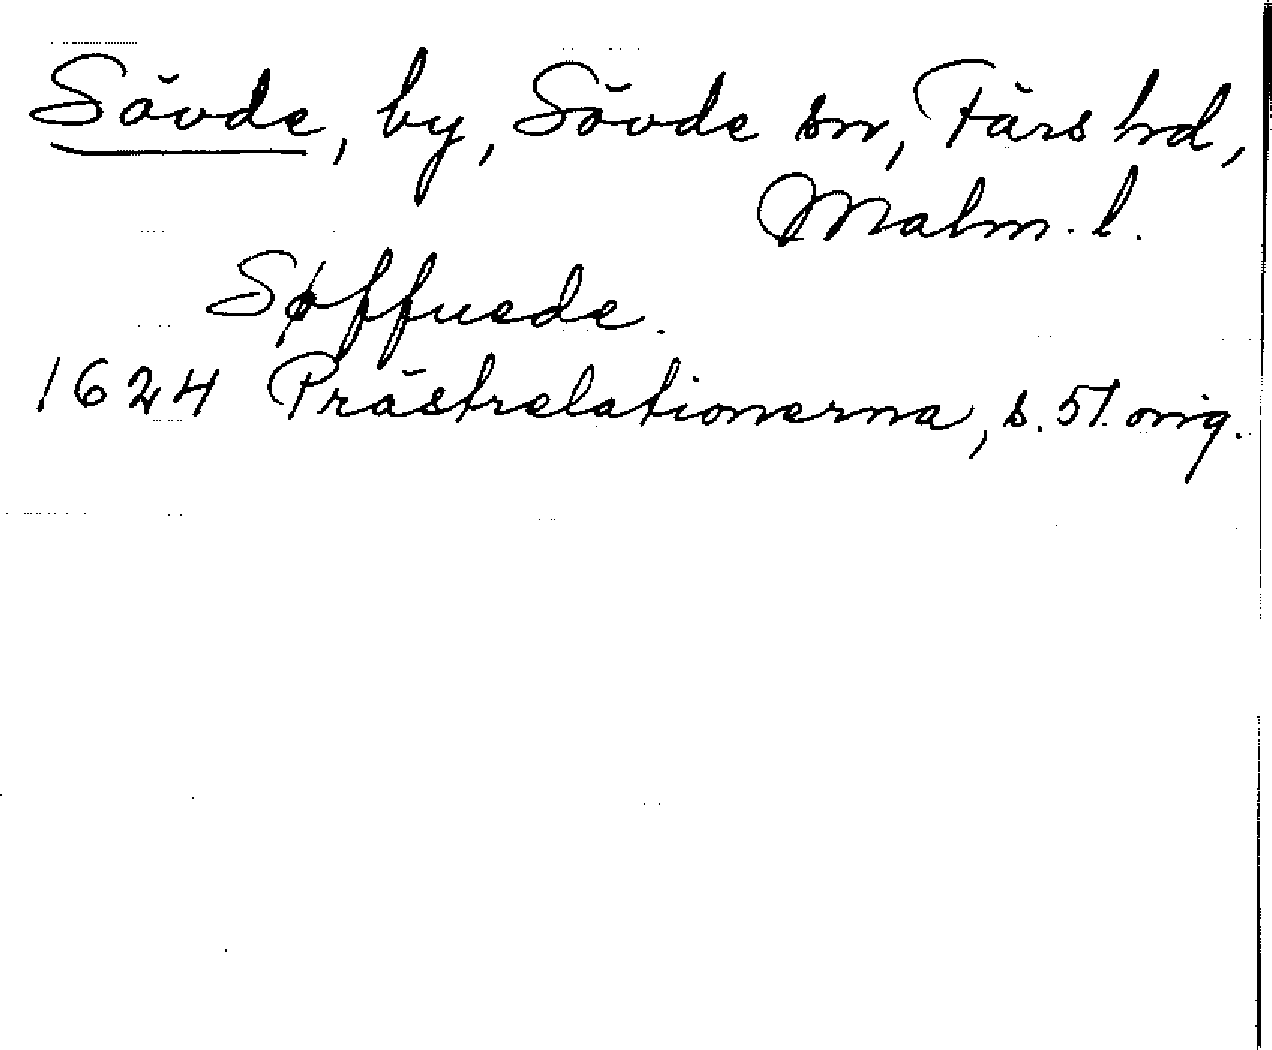 Sövde, by, Sövde sn, Färs hd,
Malm. l.
Søffuede.
1624 Prästrelationerna, s. 51. orig.